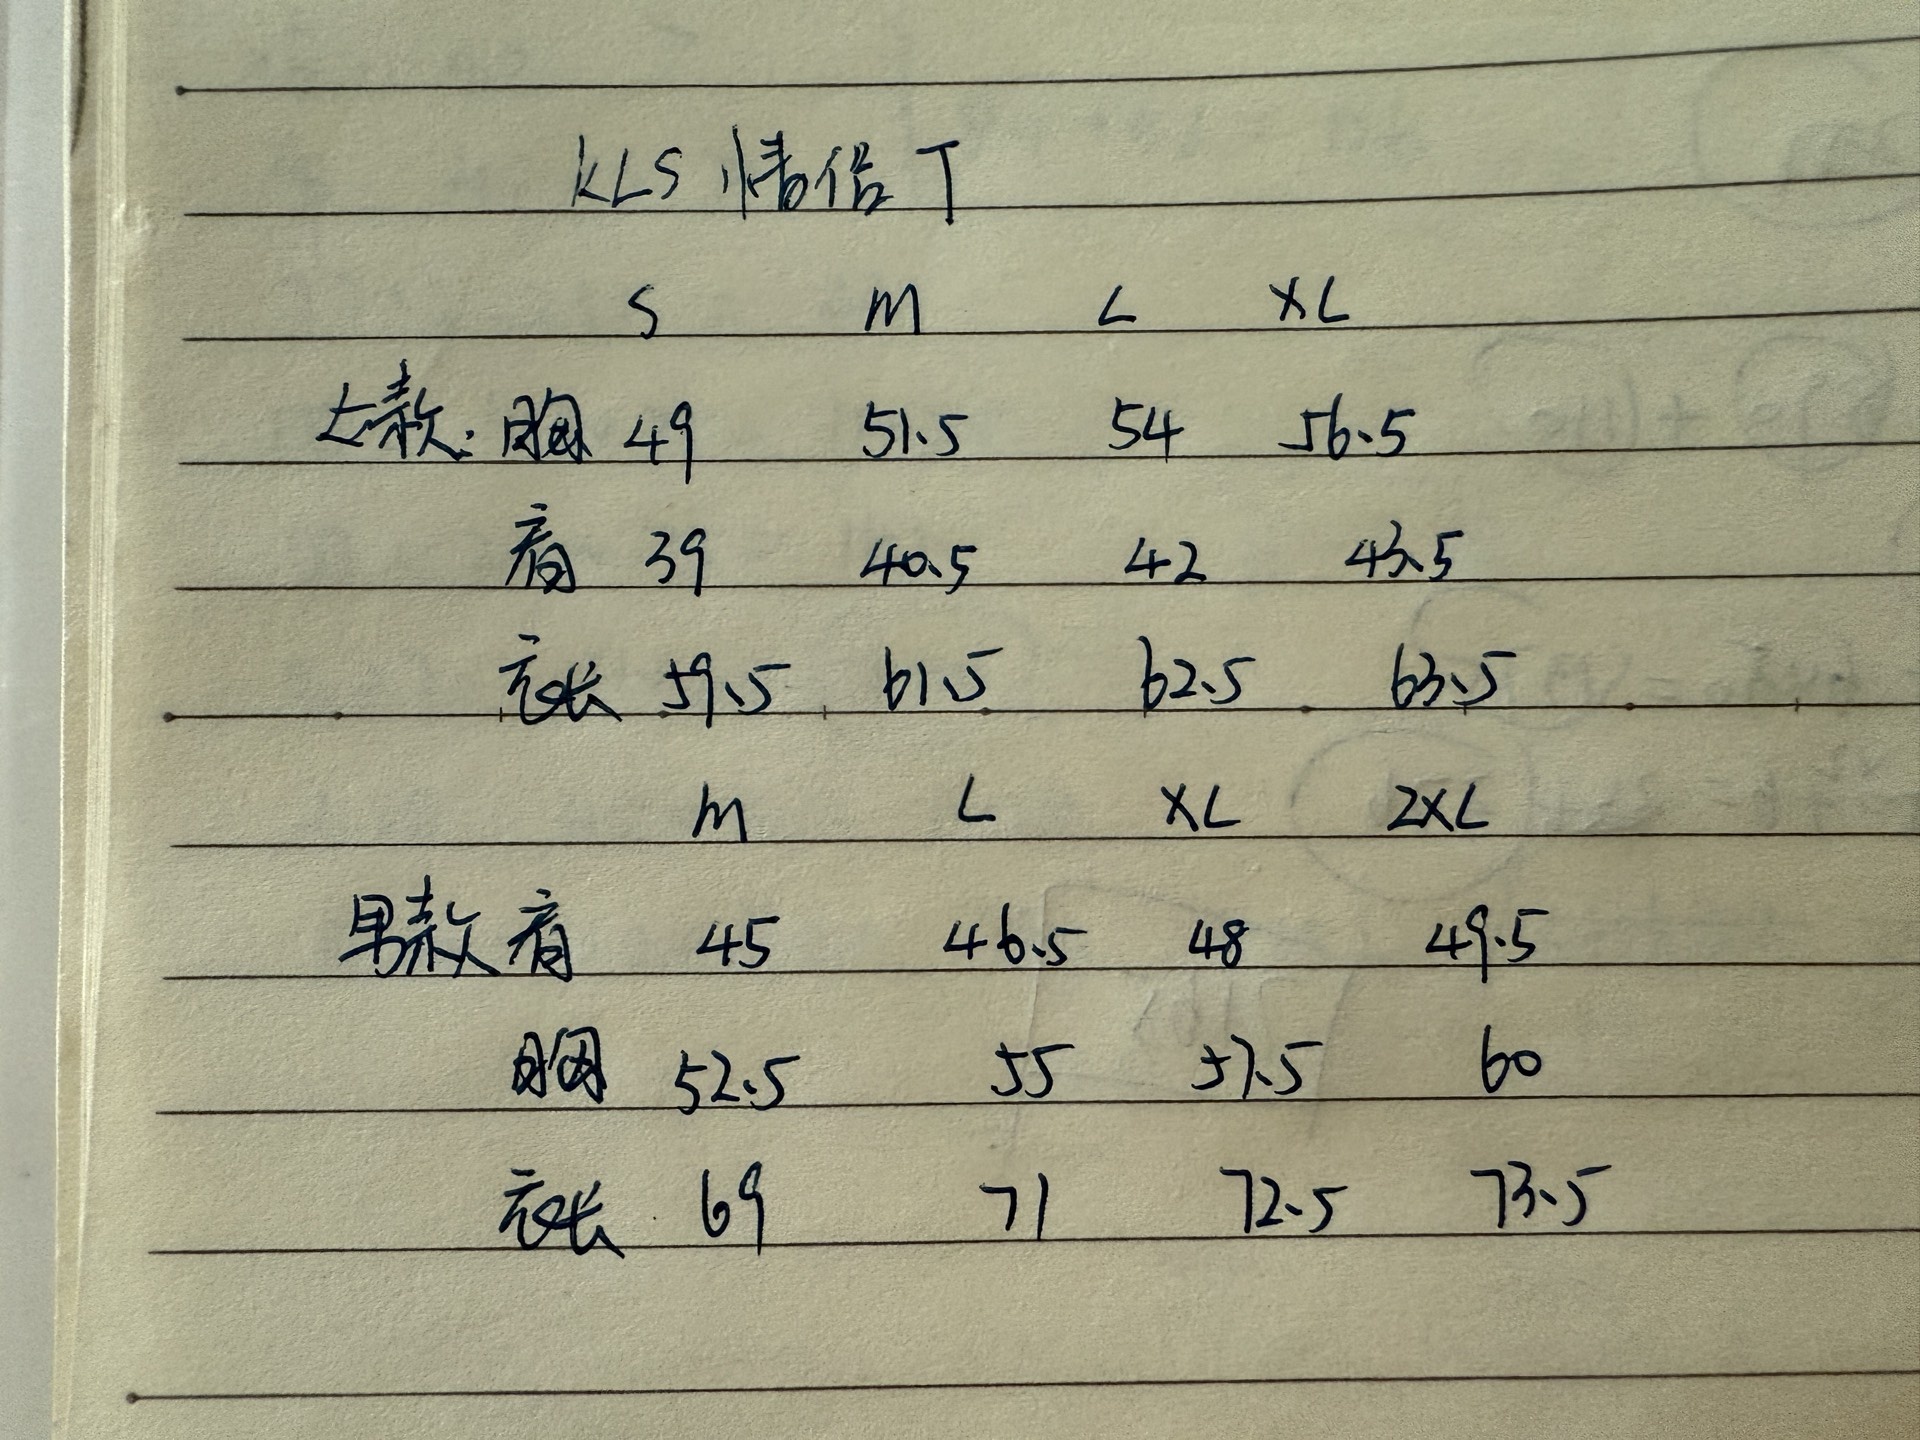 KLS 情侣T
S M L XL
女款: 胸 49 51.5 54 56.5
肩 39 40.5 42 43.5
衣长 59.5 61.5 62.5 63.5
M L XL 2XL
男款 肩 45 46.5 48 49.5
胸 52.5 55 57.5 60
衣长 69 71 72.5 73.5